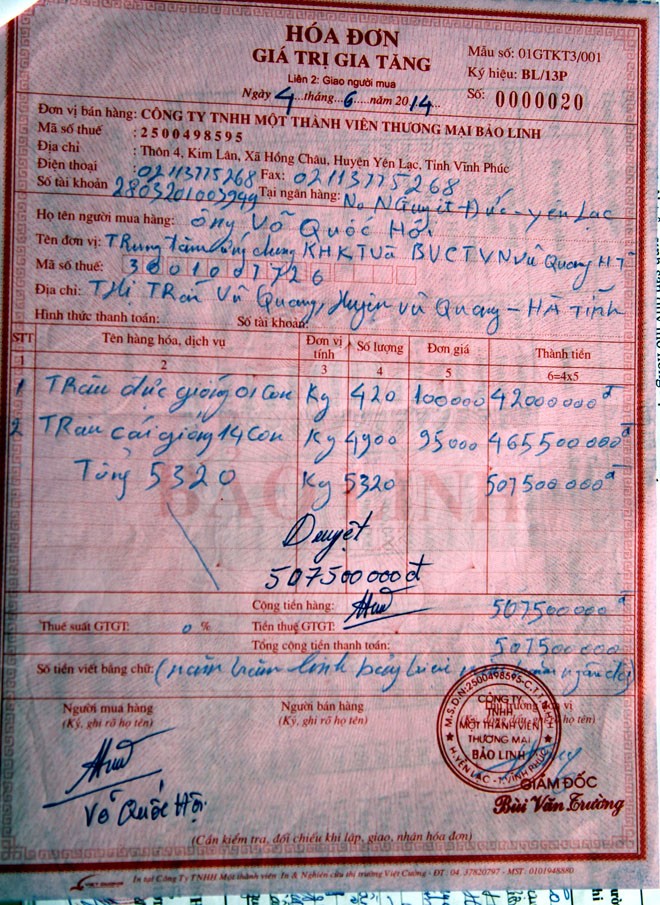 HÓA ĐƠN
GIÁ TRỊ GIA TĂNG
Liên 2: Giao người mua
Ngày 4 tháng 6 năm 2014
Mẫu số: 01GTKT3/001
Ký hiệu: BL/13P
Số: 0000020
Đơn vị bán hàng: CÔNG TY TNHH MỘT THÀNH VIÊN THƯƠNG MẠI BẢO LINH
Mã số thuế : 2500498595
Địa chỉ : Thôn 4, Kim Lân, Xã Hồng Châu, Huyện Yên Lạc, Tỉnh Vĩnh Phúc
Điện thoại : 02113775268 Fax: 02113775268
Số tài khoản 2803201003999 Tại ngân hàng: No Nguyệt Đức - yên Lạc
Họ tên người mua hàng: ông Võ Quốc Hội
Tên đơn vị: TRung tâm ứng dụng KHKT và BVCTVN Vũ Quang HT
Mã số thuế: 3001001726
Địa chỉ: Thị TRấn Vũ Quang, Huyện Vũ Quang - Hà Tĩnh
Hình thức thanh toán: Số tài khoản:
STT Tên hàng hóa, dịch vụ Đơn vị tính Số lượng Đơn giá Thành tiền
1 2 3 4 5 6=4x5
1 TRâu đực giống 01 con Kg 420 100000 42000000đ
2 TRau cái giống 14 con Kg 4900 95000 465500000đ
Tổng 5320 Kg 5320 507500000đ
BẢO LINH
Duyệt
507500000đ
Cộng tiền hàng: 507500000đ
Thuế suất GTGT: 0 % Tiền thuế GTGT:
Tổng cộng tiền thanh toán: 507500000
Số tiền viết bằng chữ: (năm trăm linh bảy triệu năm trăm ngàn đg)
Người mua hàng
(Ký, ghi rõ họ tên)
Người bán hàng
(Ký, ghi rõ họ tên)
Thủ trưởng đơn vị
M.S.D.N: 2500498595-C.T.T.N.H.H
CÔNG TY
TNHH
MỘT THÀNH VIÊN
THƯƠNG MẠI
BẢO LINH
H.YÊN LẠC - T.VĨNH PHÚC
Võ Quốc Hội
GIÁM ĐỐC
Bùi Văn Trường
(Cần kiểm tra, đối chiếu khi lập, giao, nhận hóa đơn)
In tại Công Ty TNHH Một thành viên In & Nghiên cứu thị trường Việt Cường - ĐT: 04. 37820797 - MST: 0101948880